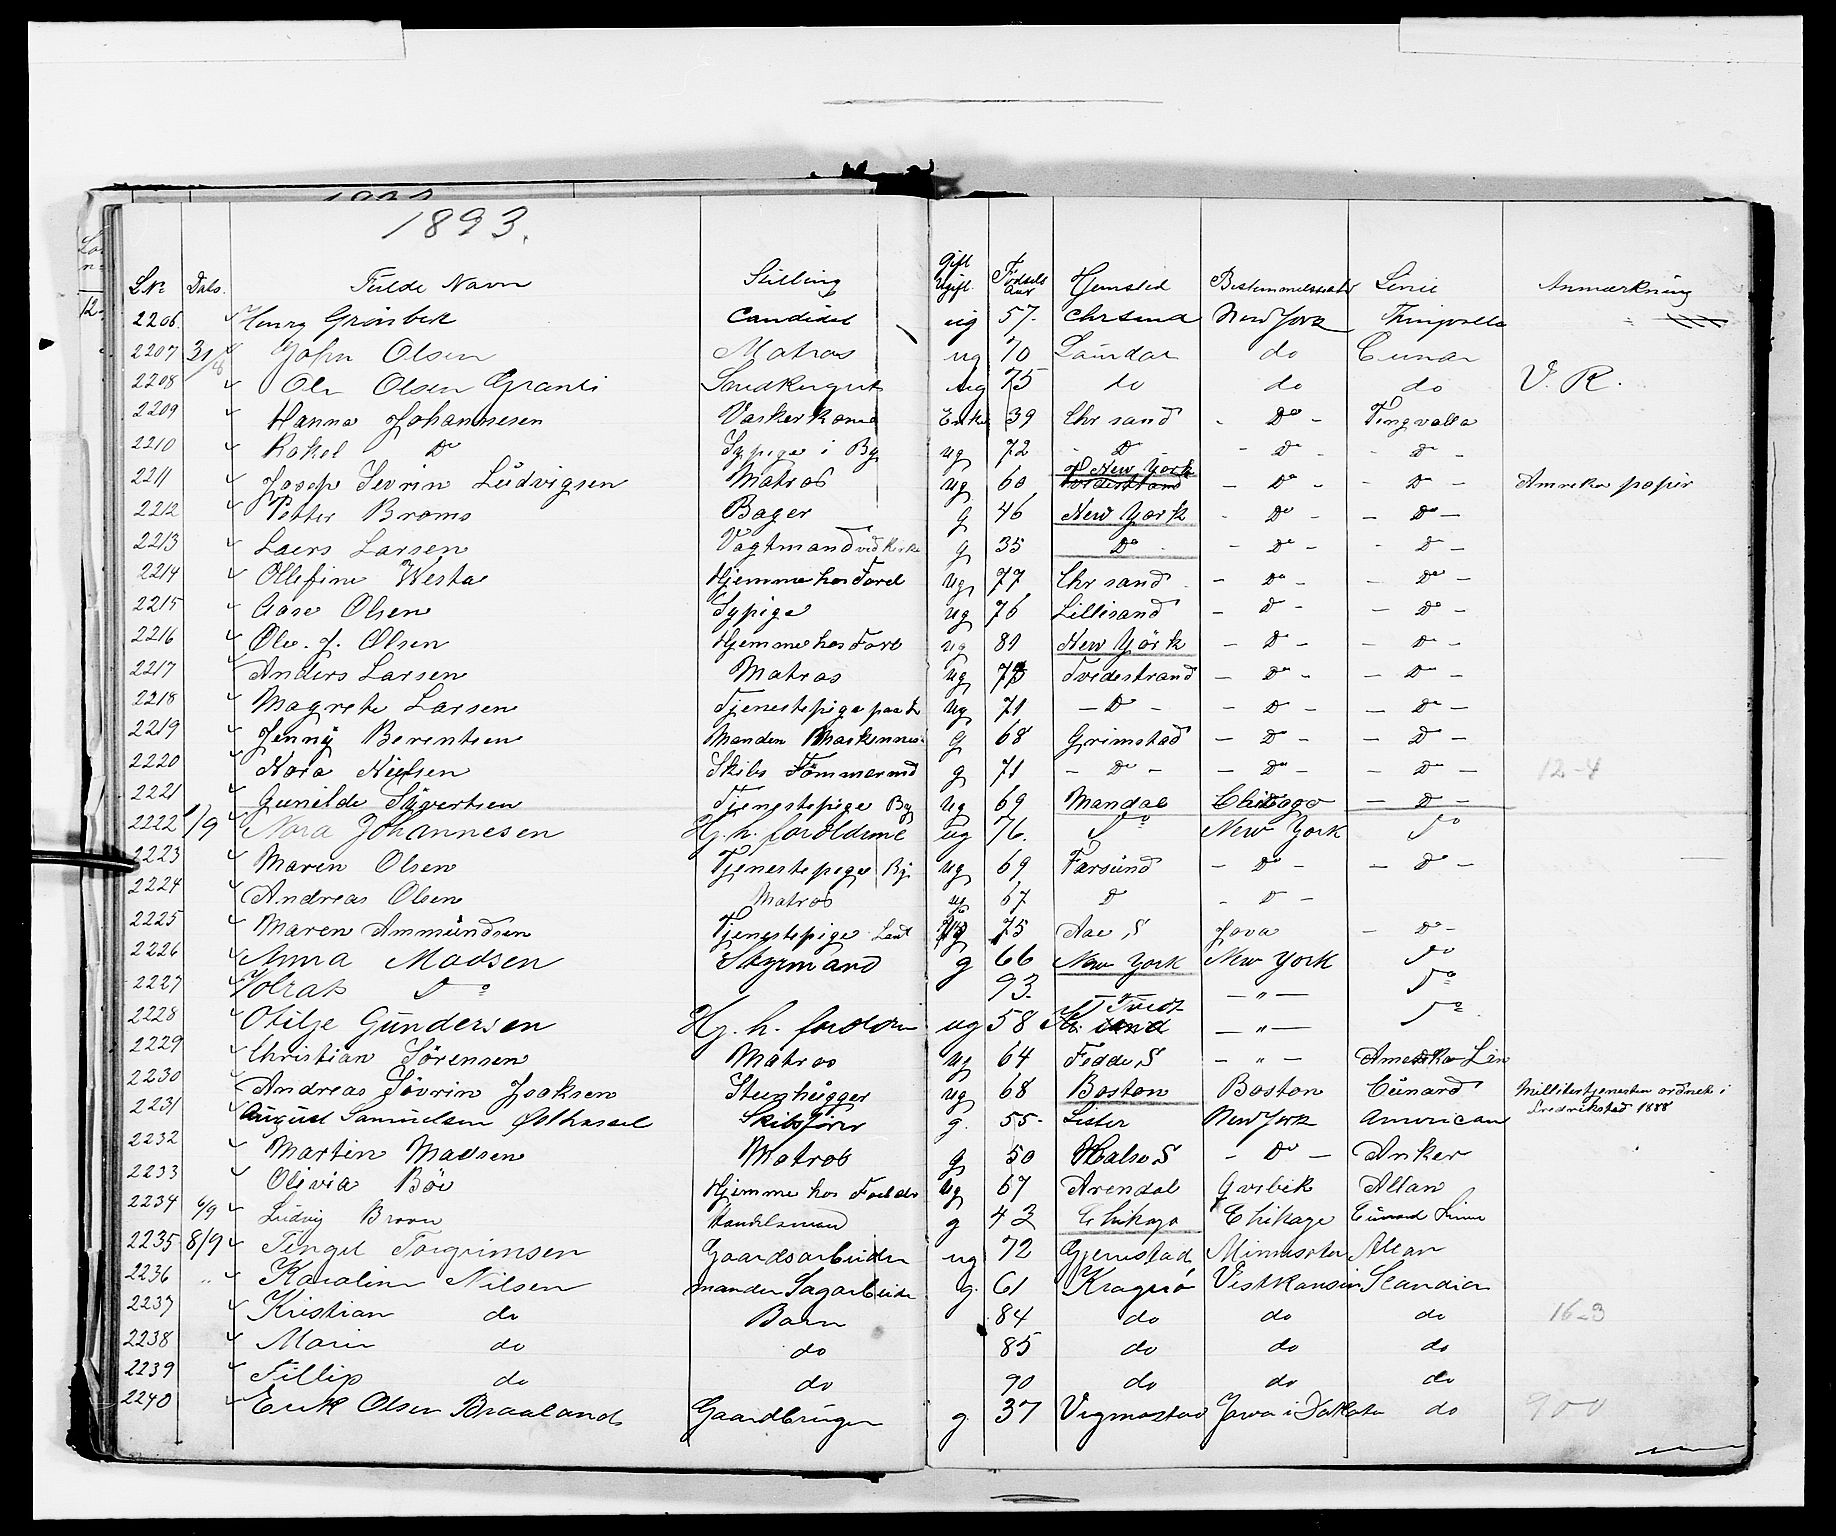 1893.
L№ Dato. Fulde Navn Stilling Gift Ugift. Fødsels aar Hjemsted Bestemmelsessted Linie Anmærkning
2206. Henry Grønbek Candidat ug 57. Chrsand New York Thingvalla
2207 31/8 John Olsen Matros ug 70 Laurdal do Cunar
2208 Ole Olsen Granli ug 75 do do do V. R.
2209 Hanna Johannesen Vaskerkone Enke 39 Chr sand - Do - Tingvalla
2210 Rakel Do Sypige i By ug 72 - Do - - Do - - Do -
2211 Josep Sevrin Ludvigsen Matros ug 60 New York - Do - - Do - Amrika papir
2212 Petter Broms Bager g 46 New York - Do - - Do -
2213 Laers Larsen Vagtmand ved Kirke g 35 Do - Do - - Do -
2214 Ollefine Westa Hjemme hos Forel ug 77 Chr sand - Do - - Do -
2215 Gase Olsen Sypige ug 76 Lillisand - Do - - Do -
2216 Ole. J. Olsen Hjemme hos Forl ug 81 New York - Do - - Do -
2217 Anders Larsen Matros ug Tvidestrand - Do - - Do -
2218 Magrete Larsen Tjenestepige paa L ug 71 - Do - - Do - - Do -
2219 Jenny Berentsen Manden Maskinnes g 68 Grimstad - Do - - Do -
2220 Nora Nielsen Skibs Tømmermd g 71 - Do - - Do - - Do - 12-4
2221 Gunilde Syvertsen Tjenestepige By ug 69 Mandal Chicago - Do -
2222 1/9 Nora Johannesen Hj. h. foroldrene ug 76. Do New York Do
2223 Maren Olsen Tjenestepige By. ug 69 Farsund - Do - - Do -
2224 Andreas Olsen Matros ug 67 Do - Do -
2225 Maren Ammundsen Tjenestepige Land ug 75 Aae S Jova - Do -
2226 Anna Madsen Styrmand g 66 New York New York Do
2227 Volrat Do 93. - " - Do
2228 Otilje Gundersen Hj. h. foroldre ug 58 Tvedt - " - Do
2229 Christian Sørensen Matros ug 64 Fedde S - " - Amerika Lin
2230 Andreas Søvrin Joaksen Stenhugger ug 68 Boston Boston Cunard Millitertjenesten ordnet i Fredrikstad 1888
2231 August Samuelsen Østhassel Skibsfører g. 55. Lister New York American
2232 Martin Madsen Matros g 50 Halse S - Do - Anker
2233 Olivia Bøe Hjemme hos Foreldr ug 67 Arendal Qvebek Allan
2234 6/9 Ludvig Broun Handelsmand g 43 Chikago Chikago Cunard Linie
2235 8/9 Tengel Torgrimsen Gaardsarbeider ug 72 Gjerrestad Minnesota Allan
2236 " Karoline Nilsen manden Sagarbeider g. 61 Kragerø Vistkonsin Scandia
2237 Kristian do Barn 84 do do do 16-3
2238 Marie do do 85 do do do
2239 Fillip do do 90 do do do
2240 Erik Olsen Braaland Gaardbruger g. 37 Vegmostad Jowa i Dakota do 900